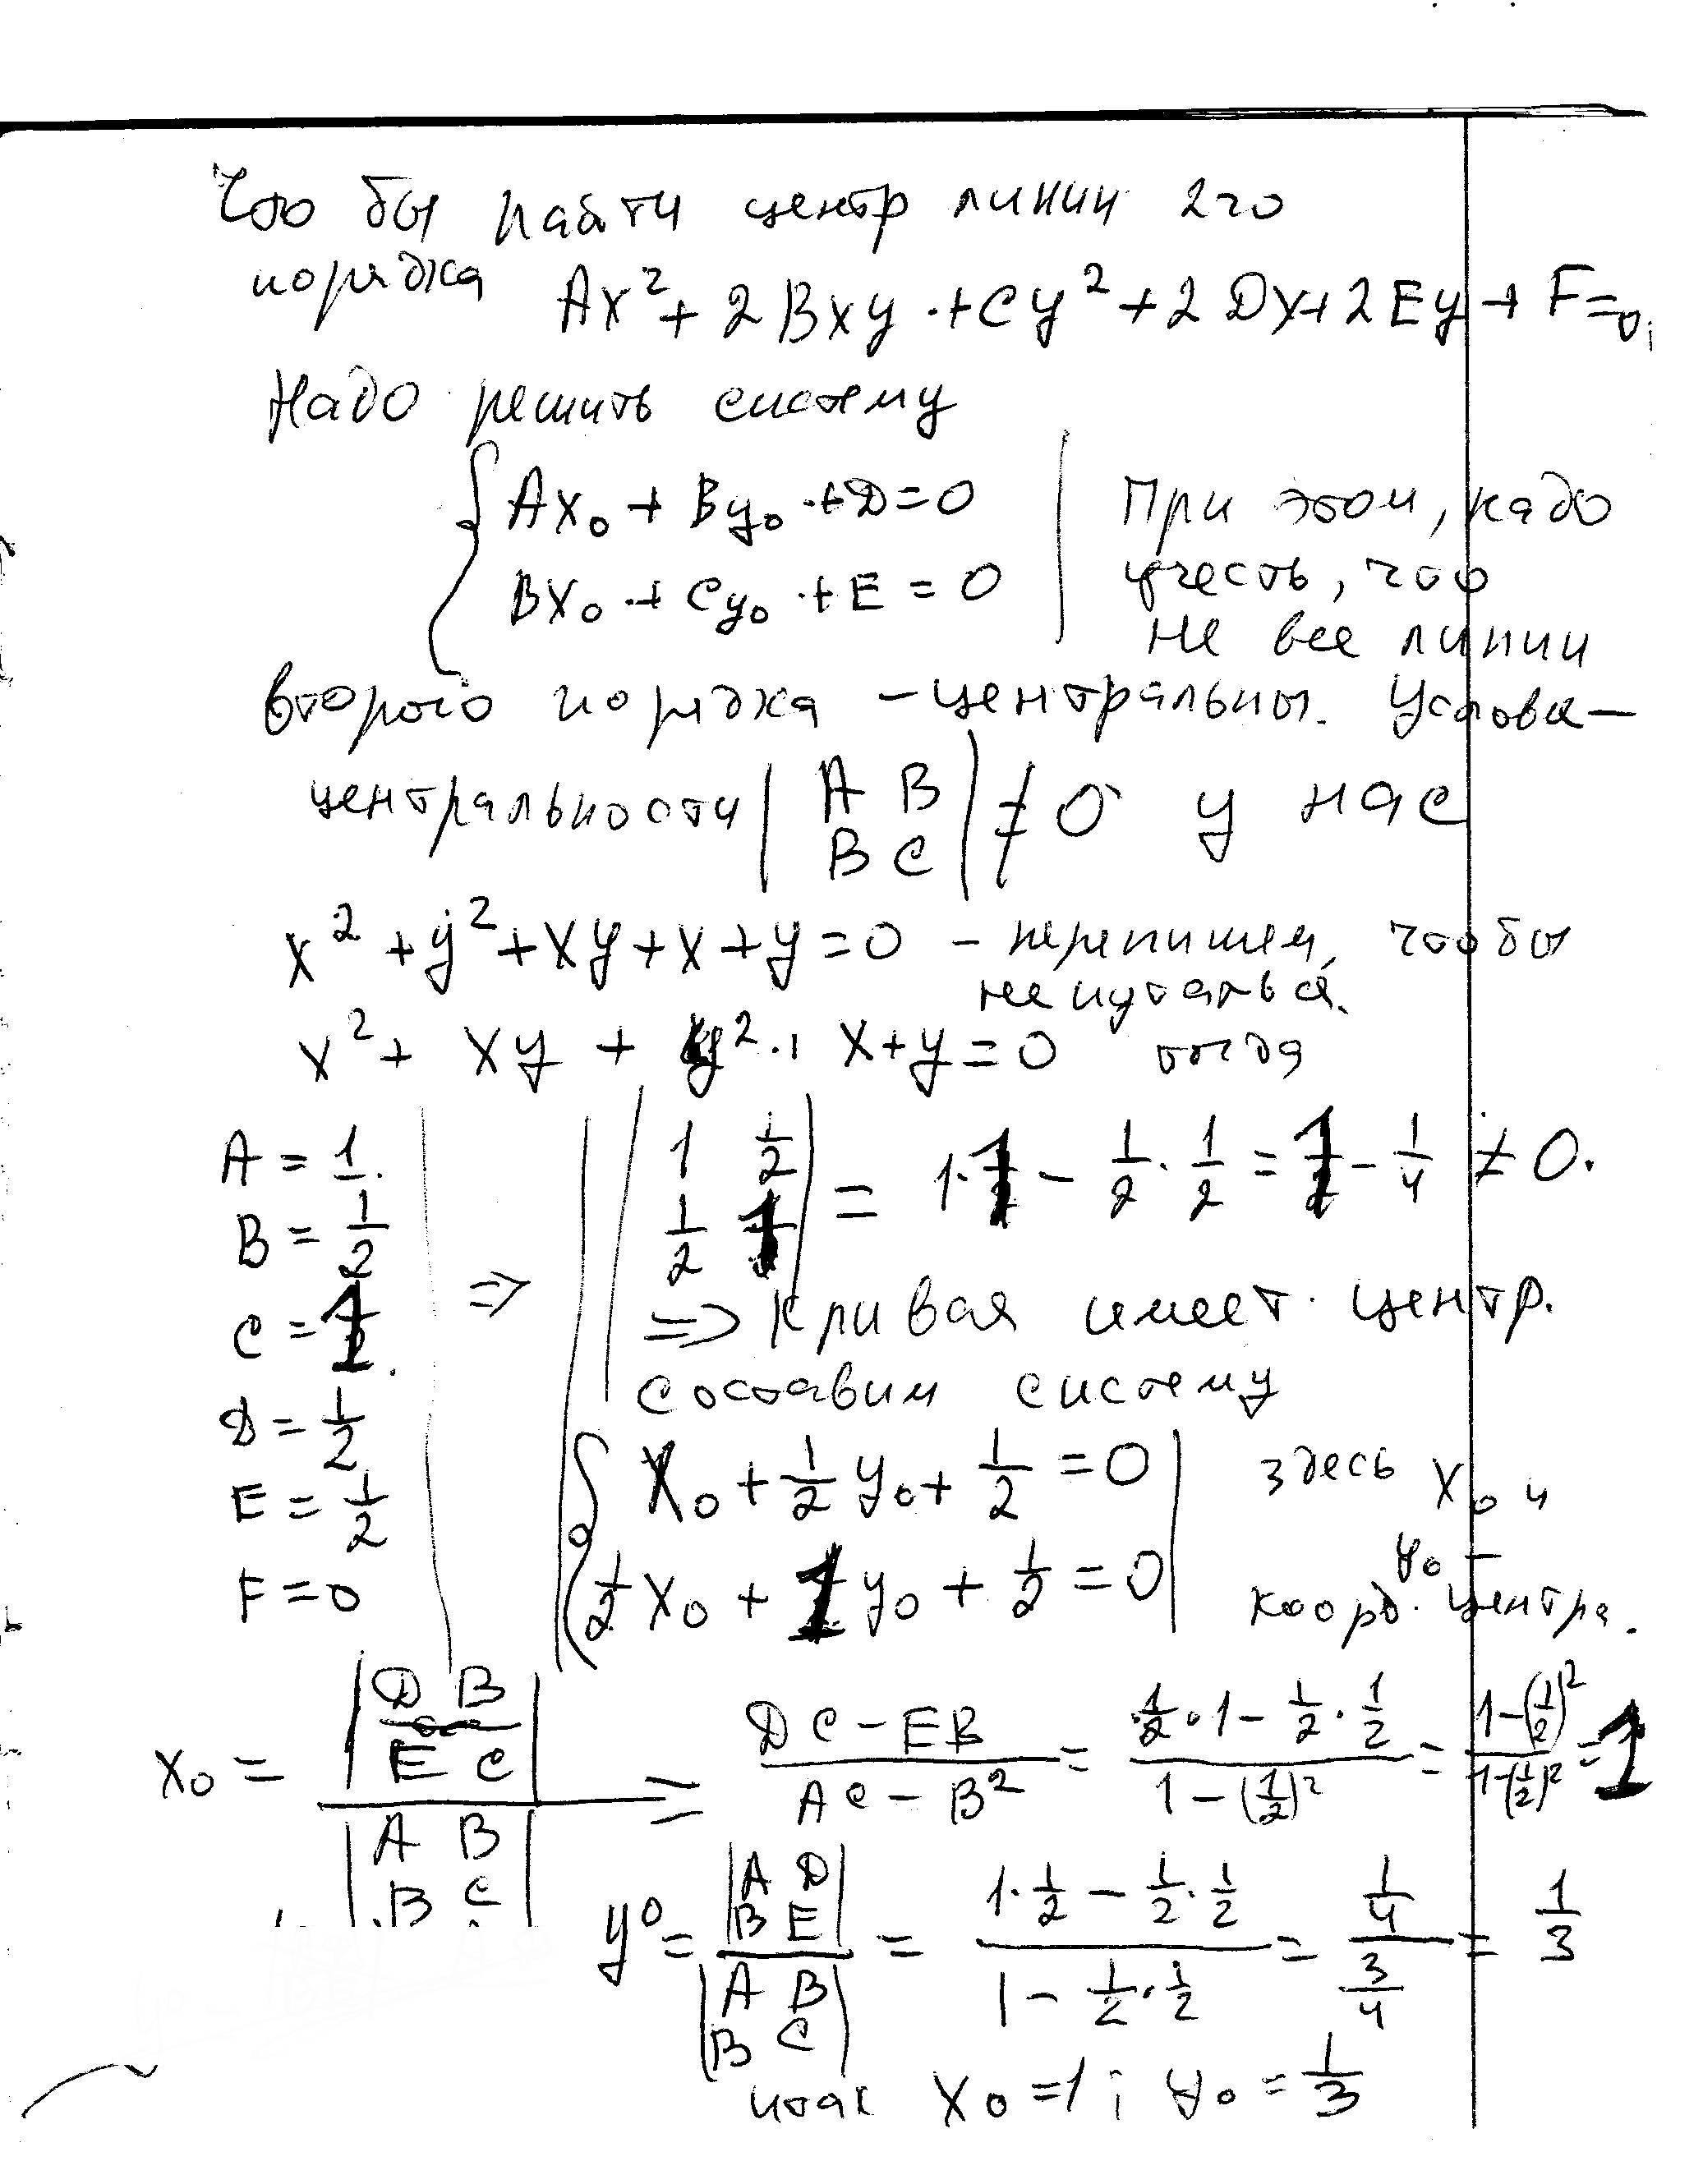 Что бы найти центр линии 2го
порядка Ax² + 2Bxy + Cy² + 2Dx + 2Ey + F = 0;
Надо решить систему
{ Ax₀ + By₀ + D = 0 | При этом, надо
Bx₀ + Cy₀ + E = 0 | учесть, что
не все линии
второго порядка – центральны. Условие
центральности | A B / B C | ≠ 0 у нас
x² + y² + xy + x + y = 0 – перепишем, чтобы
не путаться.
x² + xy + y² + x + y = 0 тогда
A = 1.
B = 1/2
C = 1.
D = 1/2
E = 1/2
F = 0
⇒ | 1 1/2 / 1/2 1 | = 1·1 – 1/2 · 1/2 = 1 – 1/4 ≠ 0.
⇒ Кривая имеет центр.
составим систему
{ x₀ + 1/2 y₀ + 1/2 = 0 | здесь x₀ и
1/2 x₀ + 1 y₀ + 1/2 = 0 | y₀ –
коорд. центра.
x₀ = | D B / E C | / | A B / B C | = (DC – EB) / (AC – B²) = (1/2 · 1 – 1/2 · 1/2) / (1 – (1/2)²) = (1 – (1/2)²) / (1 – (1/2)²) = 1
y⁰ = | A D / B E | / | A B / B C | = (1 · 1/2 – 1/2 · 1/2) / (1 – 1/2 · 1/2) = (1/4) / (3/4) = 1/3
итак x₀ = 1; y₀ = 1/3